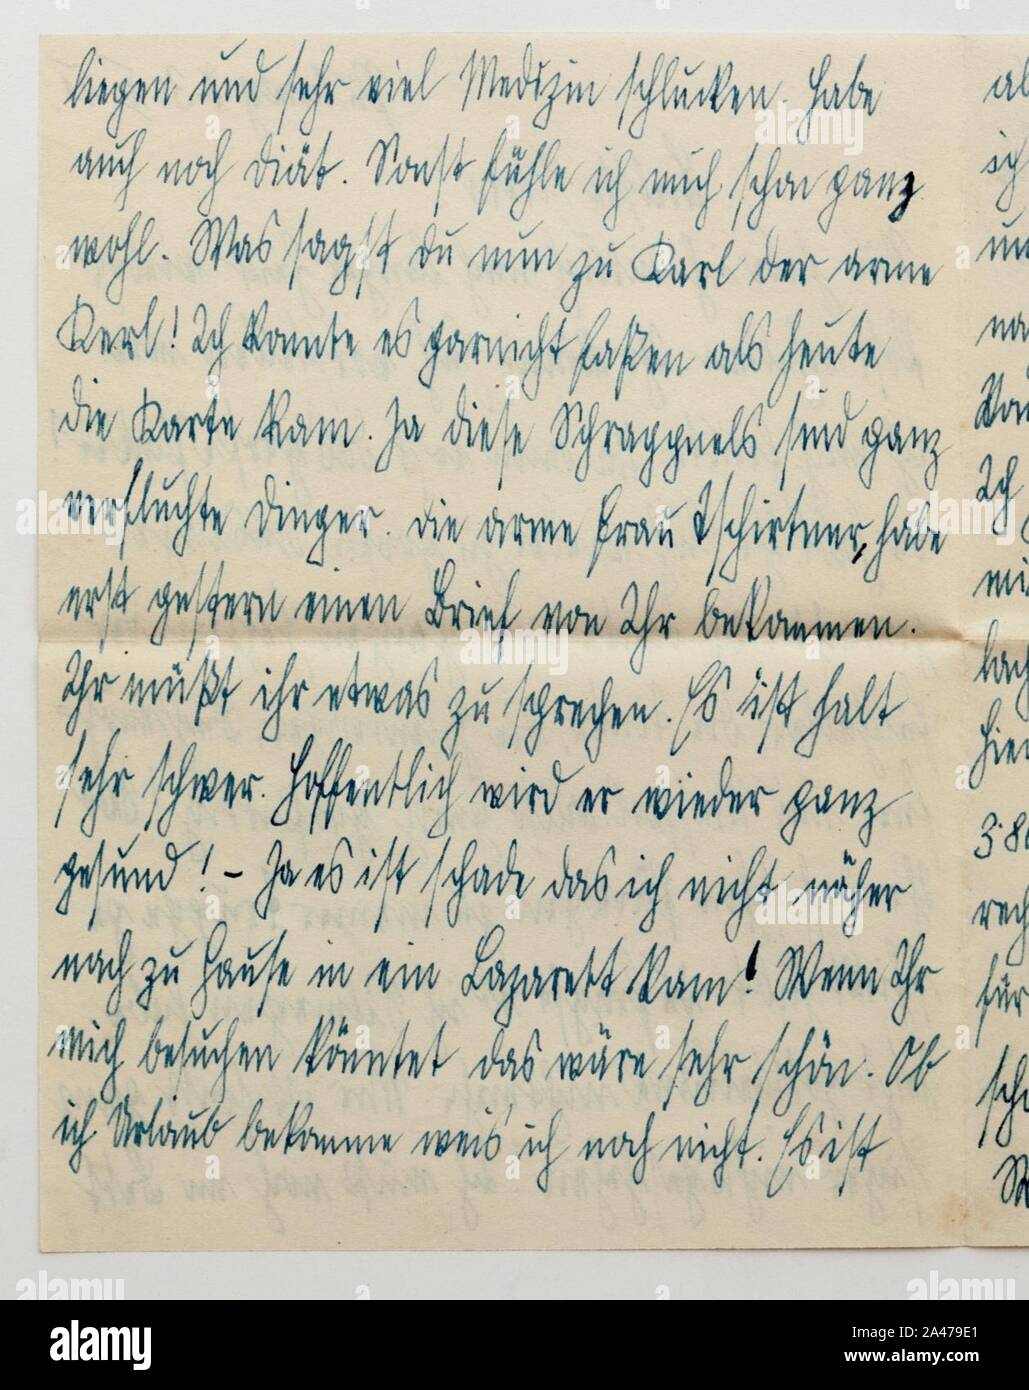 liegen und sehr viel Medizin schlucken. Habe
auch noch Diät. Sonst fühle ich mich schon ganz
wohl. Was sagst du nun zu Karl der arme
Kerl! Ich konnte es garnicht faßen als heute
die Karte kam. Ja diese Schrappnels sind ganz
verfluchte Dinger. Die arme Frau Tschirtner, habe
erst gestern einen Brief von Ihr bekommen.
Ihr müßt ihr etwas zu sprechen. Es ist halt
sehr schwer. Hoffentlich wird er wieder ganz
gesund! - Ja es ist schade das ich nicht näher
nach zu Hause in ein Lazarett kam! Wenn Ihr
mich besuchen könntet das wäre sehr schön. Ob
ich Urlaub bekomme weis ich noch nicht. Es ist
ich
Ich
für
alamy
Image ID: 2A479E1
www.alamy.com